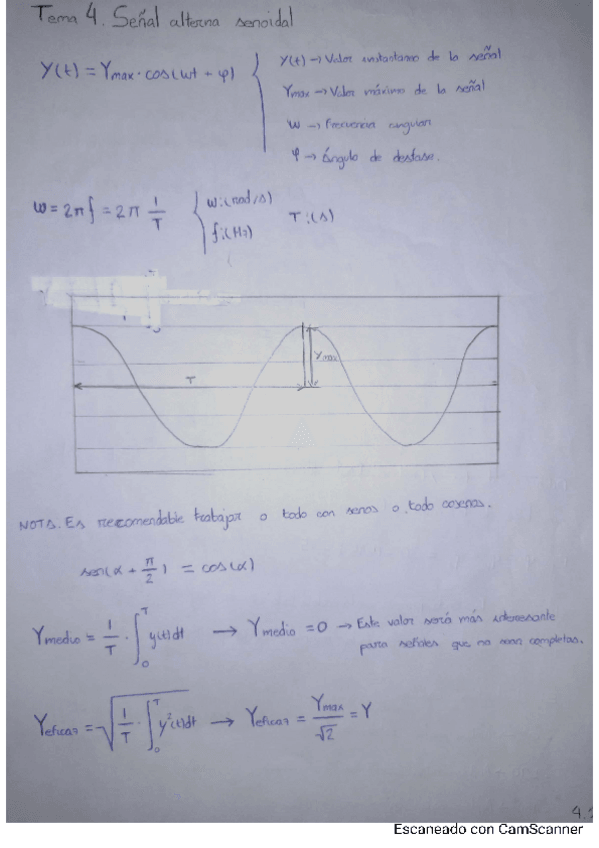 Tema 4. Señal alterna senoidal
Y(t) = Ymax · cos(wt + φ)
y(t) → Valor instantaneo de la señal
Ymax → Valor máximo de la señal
w → Frecuencia angular
φ → Ángulo de desfase.
w = 2π f = 2π 1/T
w:(rad/s)
f:(Hz)
T:(s)
Ymax
T
NOTA. Es recomendable trabajar o todo con senos o todo cosenos.
sen(α + π/2) = cos(α)
Ymedio = 1/T · ∫₀ᵀ y(t)dt → Ymedio = 0 → Este valor será más interesante
para señales que no sean completas.
Yeficaz = √(1/T · ∫₀ᵀ y²(t)dt) → Yeficaz = Ymax/√2 = Y
Escaneado con CamScanner